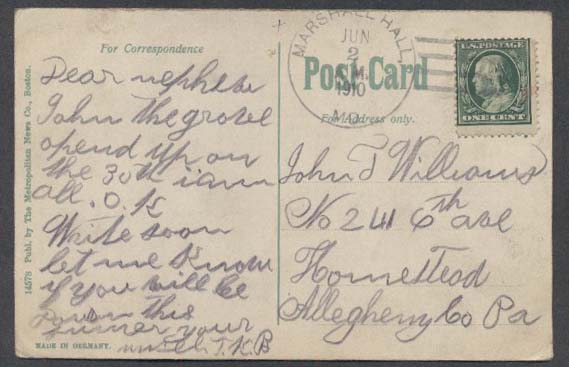 For Correspondence
Dear nephew
John the grove
opend up on
the 30th i am
all. O. K
Write soon
let me Know
if you will be
down this
sumer your
uncle J. K. B
14578 Publ. by The Metropolitan News Co., Boston.
MADE IN GERMANY.
MARSHALL HALL,
JUN
2
M.
1910
MD.
Post Card
For Address only.
U.S. POSTAGE
ONE CENT
John T Williams
No 241 6th ave
Homestead
Allegheny Co Pa